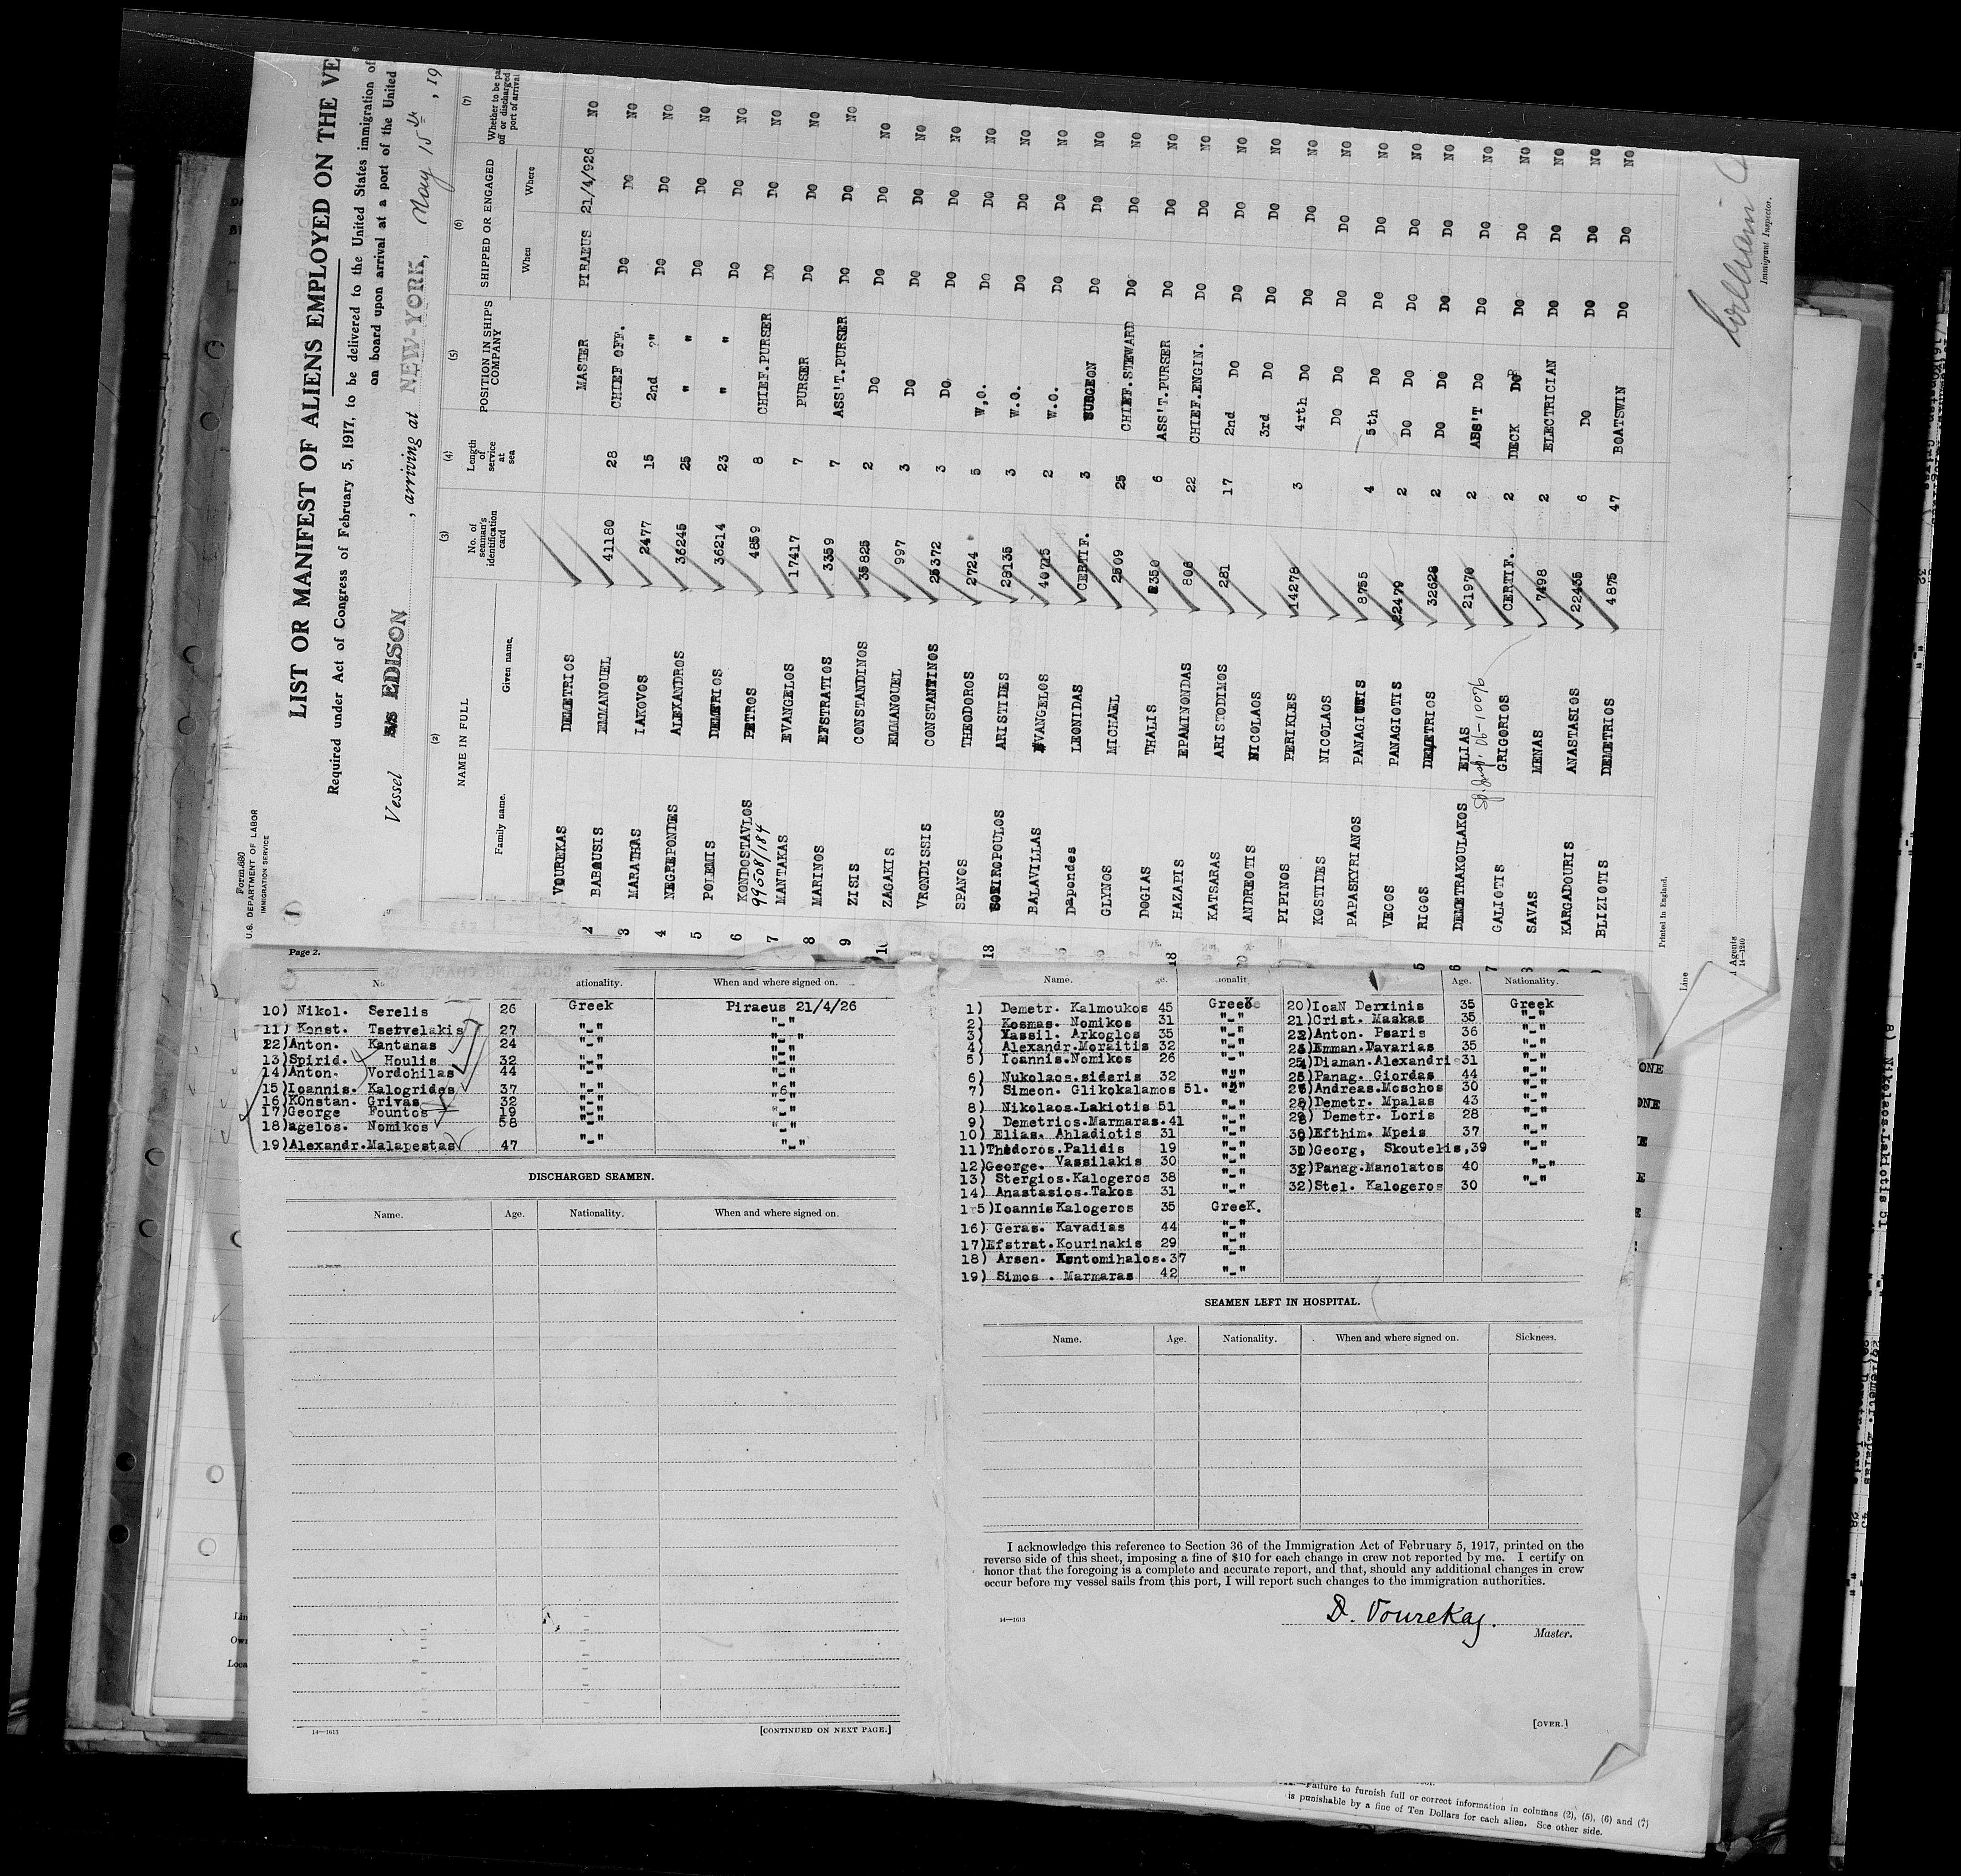 Form 680
U. S. DEPARTMENT OF LABOR
IMMIGRATION SERVICE
LIST OR MANIFEST OF ALIENS EMPLOYED ON THE VE
Required under Act of Congress of February 5, 1917, to be delivered to the United States immigration of
on board upon arrival at a port of the United
Vessel S/S EDISON , arriving at NEW-YORK, May 15th , 19
(2) (3) (4) (5) (6) (7)
NAME IN FULL
Family name. Given name.
No. of seaman's identification card
Length of service at sea
POSITION IN SHIP'S COMPANY
SHIPPED OR ENGAGED
When Where
Whether to be pa off or discharged port of arrival
VOUREKAS DEMETRIOS MASTER PIRAEUS 21/4/926 NO
2 BABOUSIS EMMANOUEL 41180 28 CHIEF OFF. DO DO NO
3 MARATHAS IAKOVOS 2477 15 2nd " DO DO NO
4 NEGREPONDES ALEXANDROS 36245 25 " " DO DO NO
5 POLEMIS DEMETRIOS 36214 23 " " DO DO NO
6 KONDOSTAVLOS PETROS 4859 8 CHIEF.PURSER DO DO NO
99508/184
7 MANTAKAS EVANGELOS 17417 7 PURSER DO DO NO
8 MARINOS EFSTRATIOS 3359 7 ASS'T.PURSER DO DO NO
9 ZISIS CONSTANDINOS 35825 2 DO DO DO NO
10 ZAGAKIS EMANOUEL 997 3 DO DO DO NO
VRONDISSIS CONSTANTINOS 25372 3 DO DO DO NO
SPANOS THEODOROS 2724 5 W.O. DO DO NO
13 SOTIROPOULOS ARISTIDES 28135 3 W.O. DO DO NO
BALAVILLAS EVANGELOS 40725 2 W.O. DO DO NO
Dapondes LEONIDAS CERTIF. 3 SURGEON DO DO NO
GLYNOS MICHAEL 2509 25 CHIEF.STEWARD DO DO NO
DOGIAS THALIS 2350 6 ASS'T.PURSER DO DO NO
18 HAZAPIS EPAMINONDAS 806 22 CHIEF.ENGIN. DO DO NO
KATSARAS ARISTODIMOS 281 17 2nd DO DO DO NO
ANDREOTIS NICOLAOS 3rd DO DO DO NO
PIPINOS PERIKLES 14278 3 4rth DO DO DO NO
KOSTIDES NICOLAOS DO DO DO DO NO
PAPASKYRIANOS PANAGIOTIS 8755 4 5th DO DO DO NO
VEGOS PANAGIOTIS 22479 2 DO DO DO DO NO
RIGOS DEMETRIOS 32628 2 DO DO DO DO NO
DEMETRAKOULAKOS ELIAS 21970 2 ABS'T DO DO DO NO
GALIOTIS GRIGORIOS CERTIF. 2 DECK DO DO DO NO
SAVAS MENAS 7498 2 ELECTRICIAN DO DO NO
KARGADOURIS ANASTASIOS 22435 6 DO DO DO NO
BLIZIOTIS DEMETRIOS 4875 47 BOATSWIN DO DO NO
Immigrant Inspector.
Printed in England.
Line
Agents
14-1240
Page 2.
ationality. When and where signed on.
10) Nikol. Serelis 26 Greek Piraeus 21/4/26
11) Konst. Tsetvelakis 27 "-" "-"
12)Anton. Kantanas 24 "-" "-"
13)Spirid. Houlis 32 "-" "-"
14)Anton. Vordohilas 44 "-" "-"
15)Ioannis. Kalogrides 37 "-" "-"
16)KOnstan. Grivas 32 "-" "-"
17)George Fountos 19 "-" "-"
18)agelos. Nomikos 58 "-" "-"
19)Alexandr.Malapestas 47 "-" "-"
DISCHARGED SEAMEN.
Name. Age. Nationality. When and where signed on.
14—1613
[CONTINUED ON NEXT PAGE.]
Name. ge. ionalit
1) Demetr. Kalmoukos 45 Greek
2) Kosmas. Nomikos 31 "-"
3) Vassil. Arkoglos 35 "-"
4) Alexandr.Moraitis 32 "-"
5) Ioannis.Nomikos 26 "-"
6) Nukolaos.sideris 32 "-"
7) Simeon. Glikokalamos 51. "-"
8) Nikolaos.Lakiotis 51 "-"
9) Demetrios.Marmaras.41 "-"
10) Elias. Ahladiotis 31 "-"
11)Thedoros.Palidis 19 "-"
12)George. Vassilakis 30 "-"
13) Stergios.Kalogeros 38 "-"
14) Anastasios.Takos 31 "-"
15)Ioannis Kalogeros 35 GreeK.
16) Geras. Kavadias 44 "-"
17)Efstrat.Kourinakis 29 "-"
18) Arsen. Kontomihalos.37 "-"
19) Simos . Marmaras 42 "-"
Age. Nationality.
20)IoaN Derxinis 35 Greek
21)Crist. Maskas 35 "-"
22)Anton. Psaris 36 "-"
Emman.Vavarias 35 "-"
Diaman.Alexandris 31 "-"
Panag. Giordas 44 "-"
Andreas.Moschos 30 "-"
Demetr. Mpalas 43 "-"
Demetr. Loris 28 "-"
Efthim. Mpeis 37 "-"
Georg, Skoutelis,39 "-"
Panag.Manolatos 40 "-"
32)Stel. Kalogeros 30 "-"
SEAMEN LEFT IN HOSPITAL.
Name. Age. Nationality. When and where signed on. Sickness.
I acknowledge this reference to Section 36 of the Immigration Act of February 5, 1917, printed on the
reverse side of this sheet, imposing a fine of $10 for each change in crew not reported by me. I certify on
honor that the foregoing is a complete and accurate report, and that, should any additional changes in crew
occur before my vessel sails from this port, I will report such changes to the immigration authorities.
14—1613
D. Vourekas.
Master.
[OVER.]
Failure to furnish full or correct information in columns (2), (5), (6) and (7)
is punishable by a fine of Ten Dollars for each alien. See other side.
8) Nikolaos.Lakiotis 51